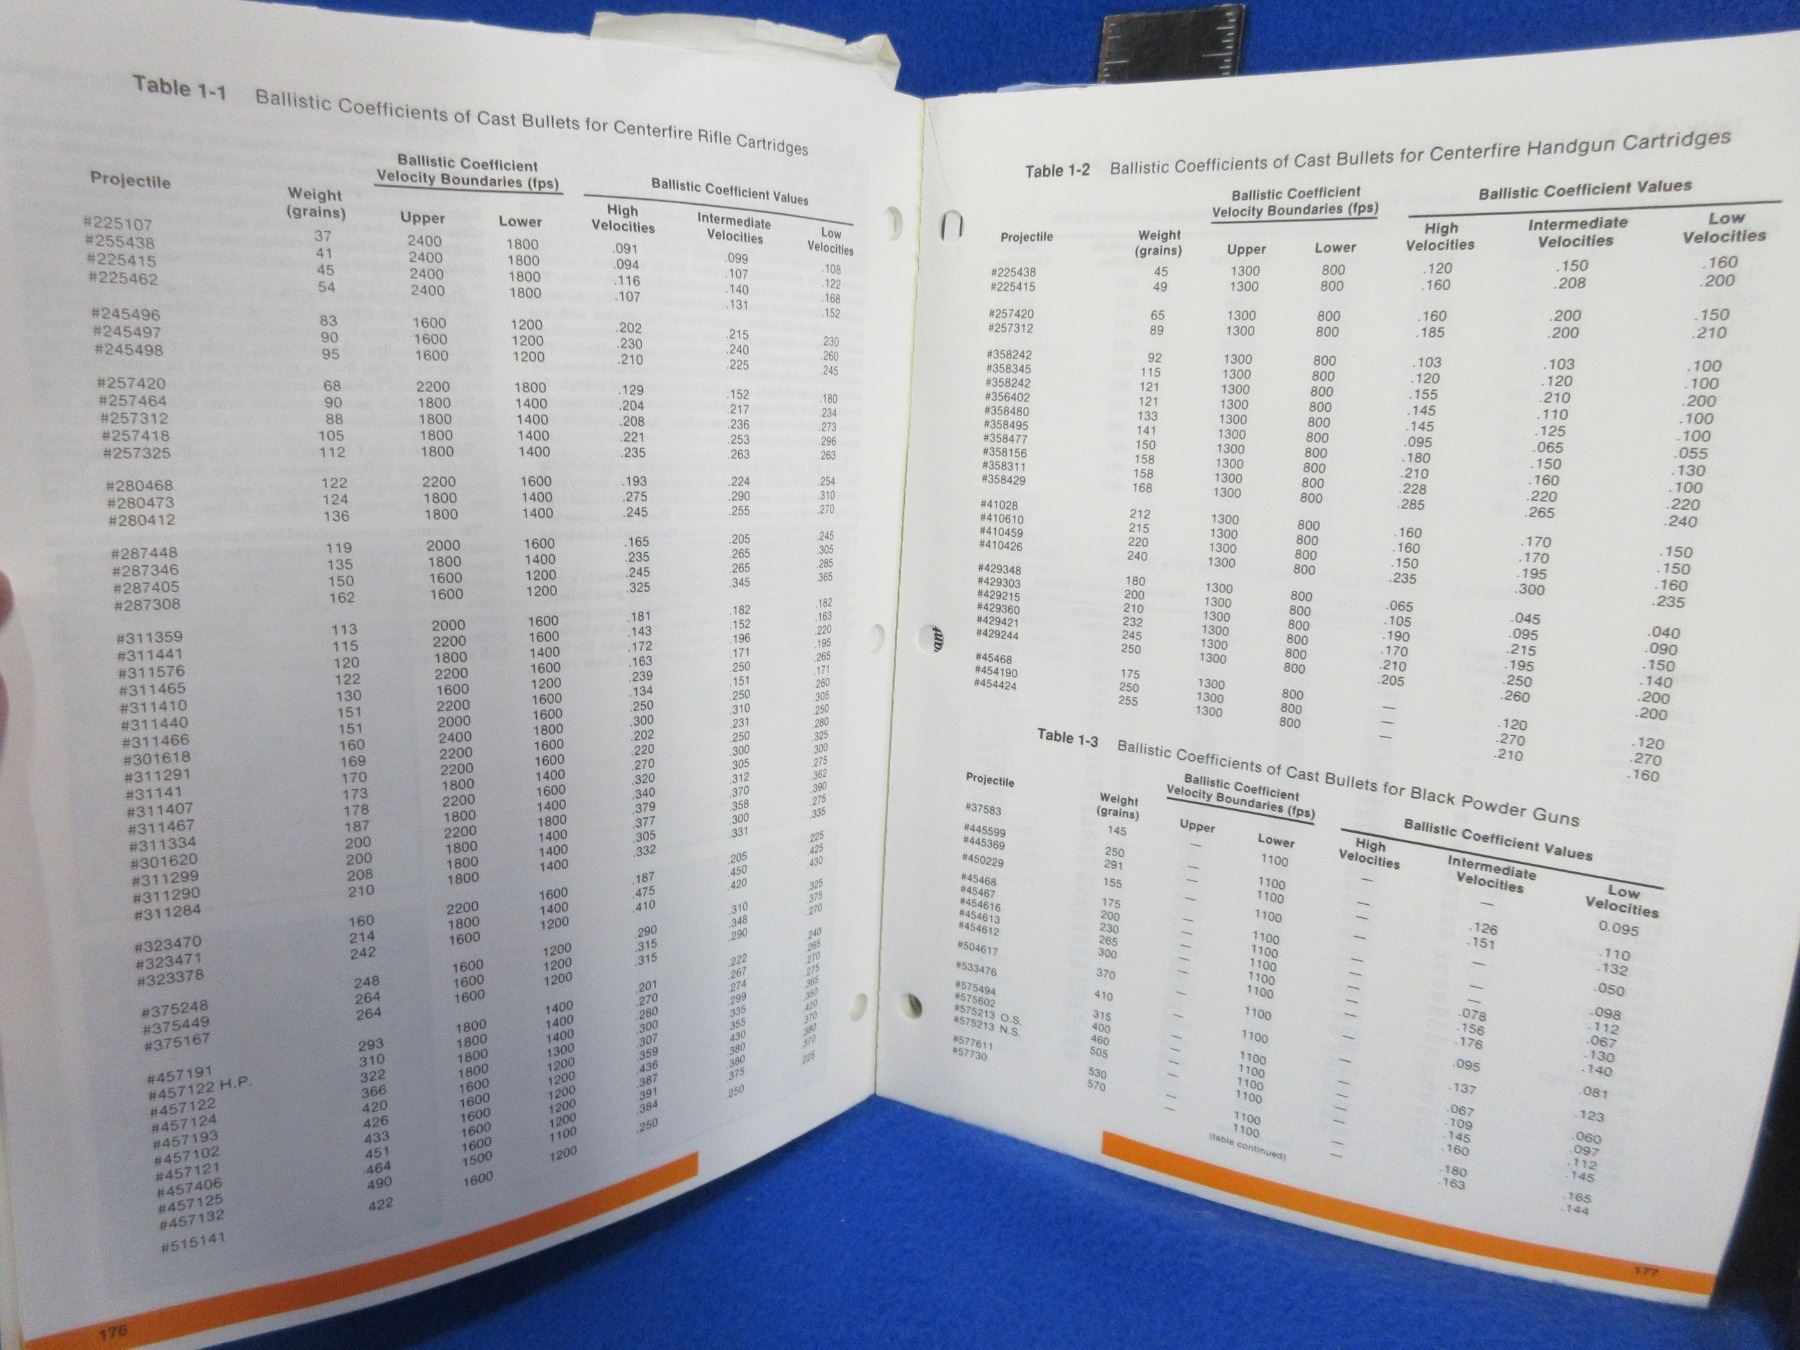 Table 1-1 Ballistic Coefficients of Cast Bullets for Centerfire Rifle Cartridges
Ballistic Coefficient
Velocity Boundaries (fps)
Ballistic Coefficient Values
Projectile Weight (grains) Upper Lower High Velocities Intermediate Velocities Low Velocities
#225107 37 2400 1800 .091 .099 .108
#255438 41 2400 1800 .094 .107 .122
#225415 45 2400 1800 .116 .140 .168
#225462 54 2400 1800 .107 .131 .152
#245496 83 1600 1200 .202 .215 .230
#245497 90 1600 1200 .230 .240 .260
#245498 95 1600 1200 .210 .225 .245
#257420 68 2200 1800 .129 .152 .180
#257464 90 1800 1400 .204 .217 .234
#257312 88 1800 1400 .208 .236 .273
#257418 105 1800 1400 .221 .253 .296
#257325 112 1800 1400 .235 .263 .263
#280468 122 2200 1600 .193 .224 .254
#280473 124 1800 1400 .275 .290 .310
#280412 136 1800 1400 .245 .255 .270
#287448 119 2000 1600 .165 .205 .245
#287346 135 1800 1400 .235 .265 .305
#287405 150 1600 1200 .245 .265 .285
#287308 162 1600 1200 .325 .345 .365
#311359 113 2000 1600 .181 .182 .182
#311441 115 2200 1600 .143 .152 .163
#311576 120 1800 1400 .172 .196 .220
#311465 122 2200 1600 .163 .171 .195
#311410 130 1600 1200 .239 .250 .265
#311440 151 2200 1600 .134 .151 .171
#311466 151 2000 1600 .250 .250 .260
#301618 160 2400 1800 .300 .310 .305
#311291 169 2200 1600 .202 .231 .250
#31141 170 2200 1600 .220 .250 .280
#311407 173 1800 1400 .270 .300 .325
#311467 178 2200 1600 .320 .305 .300
#311334 187 1800 1400 .340 .312 .275
#301620 200 2200 1800 .379 .370 .362
#311299 200 1800 1400 .377 .358 .390
#311290 208 1800 1400 .305 .300 .275
#311284 210 1800 1400 .332 .331 .335
#323470 160 2200 1600 .187 .205 .225
#323471 214 1800 1400 .475 .450 .425
#323378 242 1600 1200 .410 .420 .430
#375248 248 1600 1200 .290 .310 .325
#375449 264 1600 1200 .315 .348 .375
#375167 264 1600 1200 .315 .290 .270
#457191 293 1800 1400 .201 .222 .240
#457122 H.P. 310 1800 1400 .270 .267 .265
#457122 322 1800 1400 .280 .274 .270
#457124 366 1800 1300 .300 .299 .275
#457193 420 1600 1200 .307 .335 .365
#457102 426 1600 1200 .359 .355 .350
#457121 433 1600 1200 .436 .430 .420
#457406 451 1600 1200 .387 .380 .370
#457125 464 1600 1100 .391 .380 .380
#457132 490 1500 1200 .384 .375 .370
#515141 422 1600 .250 .250 .225
176
Table 1-2 Ballistic Coefficients of Cast Bullets for Centerfire Handgun Cartridges
Ballistic Coefficient
Velocity Boundaries (fps)
Ballistic Coefficient Values
Projectile Weight (grains) Upper Lower High Velocities Intermediate Velocities Low Velocities
#225438 45 1300 800 .120 .150 .160
#225415 49 1300 800 .160 .208 .200
#257420 65 1300 800 .160 .200 .150
#257312 89 1300 800 .185 .200 .210
#358242 92 1300 800 .103 .103 .100
#358345 115 1300 800 .120 .120 .100
#358242 121 1300 800 .155 .210 .200
#356402 121 1300 800 .145 .110 .100
#358480 133 1300 800 .145 .125 .100
#358495 141 1300 800 .095 .065 .055
#358477 150 1300 800 .180 .150 .130
#358156 158 1300 800 .210 .160 .100
#358311 158 1300 800 .228 .220 .220
#358429 168 1300 800 .285 .265 .240
#41028 212 1300 800 .160 .170 .150
#410610 215 1300 800 .160 .170 .150
#410459 220 1300 800 .150 .195 .160
#410426 240 1300 800 .235 .300 .235
#429348 180 1300 800 .065 .045 .040
#429303 200 1300 800 .105 .095 .090
#429215 210 1300 800 .190 .215 .150
#429360 232 1300 800 .170 .195 .140
#429421 245 1300 800 .210 .250 .200
#429244 250 1300 800 .205 .260 .200
#45468 175 1300 800 — .120 .120
#454190 250 1300 800 — .270 .270
#454424 255 1300 800 — .210 .160
Table 1-3 Ballistic Coefficients of Cast Bullets for Black Powder Guns
Ballistic Coefficient
Velocity Boundaries (fps)
Ballistic Coefficient Values
Projectile Weight (grains) Upper Lower High Velocities Intermediate Velocities Low Velocities
#37583 145 — 1100 — — 0.095
#445599 250 — 1100 — .126 .110
#445369 291 — 1100 — .151 .132
#450229 155 — 1100 — — .050
#45468 175 — 1100 — — .098
#45467 200 — 1100 — — .112
#454616 230 — 1100 — .078 .067
#454613 265 — 1100 — .156 .130
#454612 300 — 1100 — .176 .140
#504617 370 — 1100 — .095 .081
#533476 410 — 1100 — .137 .123
#575494 315 — 1100 — .067 .060
#575602 400 — 1100 — .109 .097
#575213 O.S. 460 — 1100 — .145 .112
#575213 N.S. 505 — 1100 — .160 .145
#577611 530 — 1100 — .180 .165
#57730 570 — 1100 — .163 .144
(table continued)
177